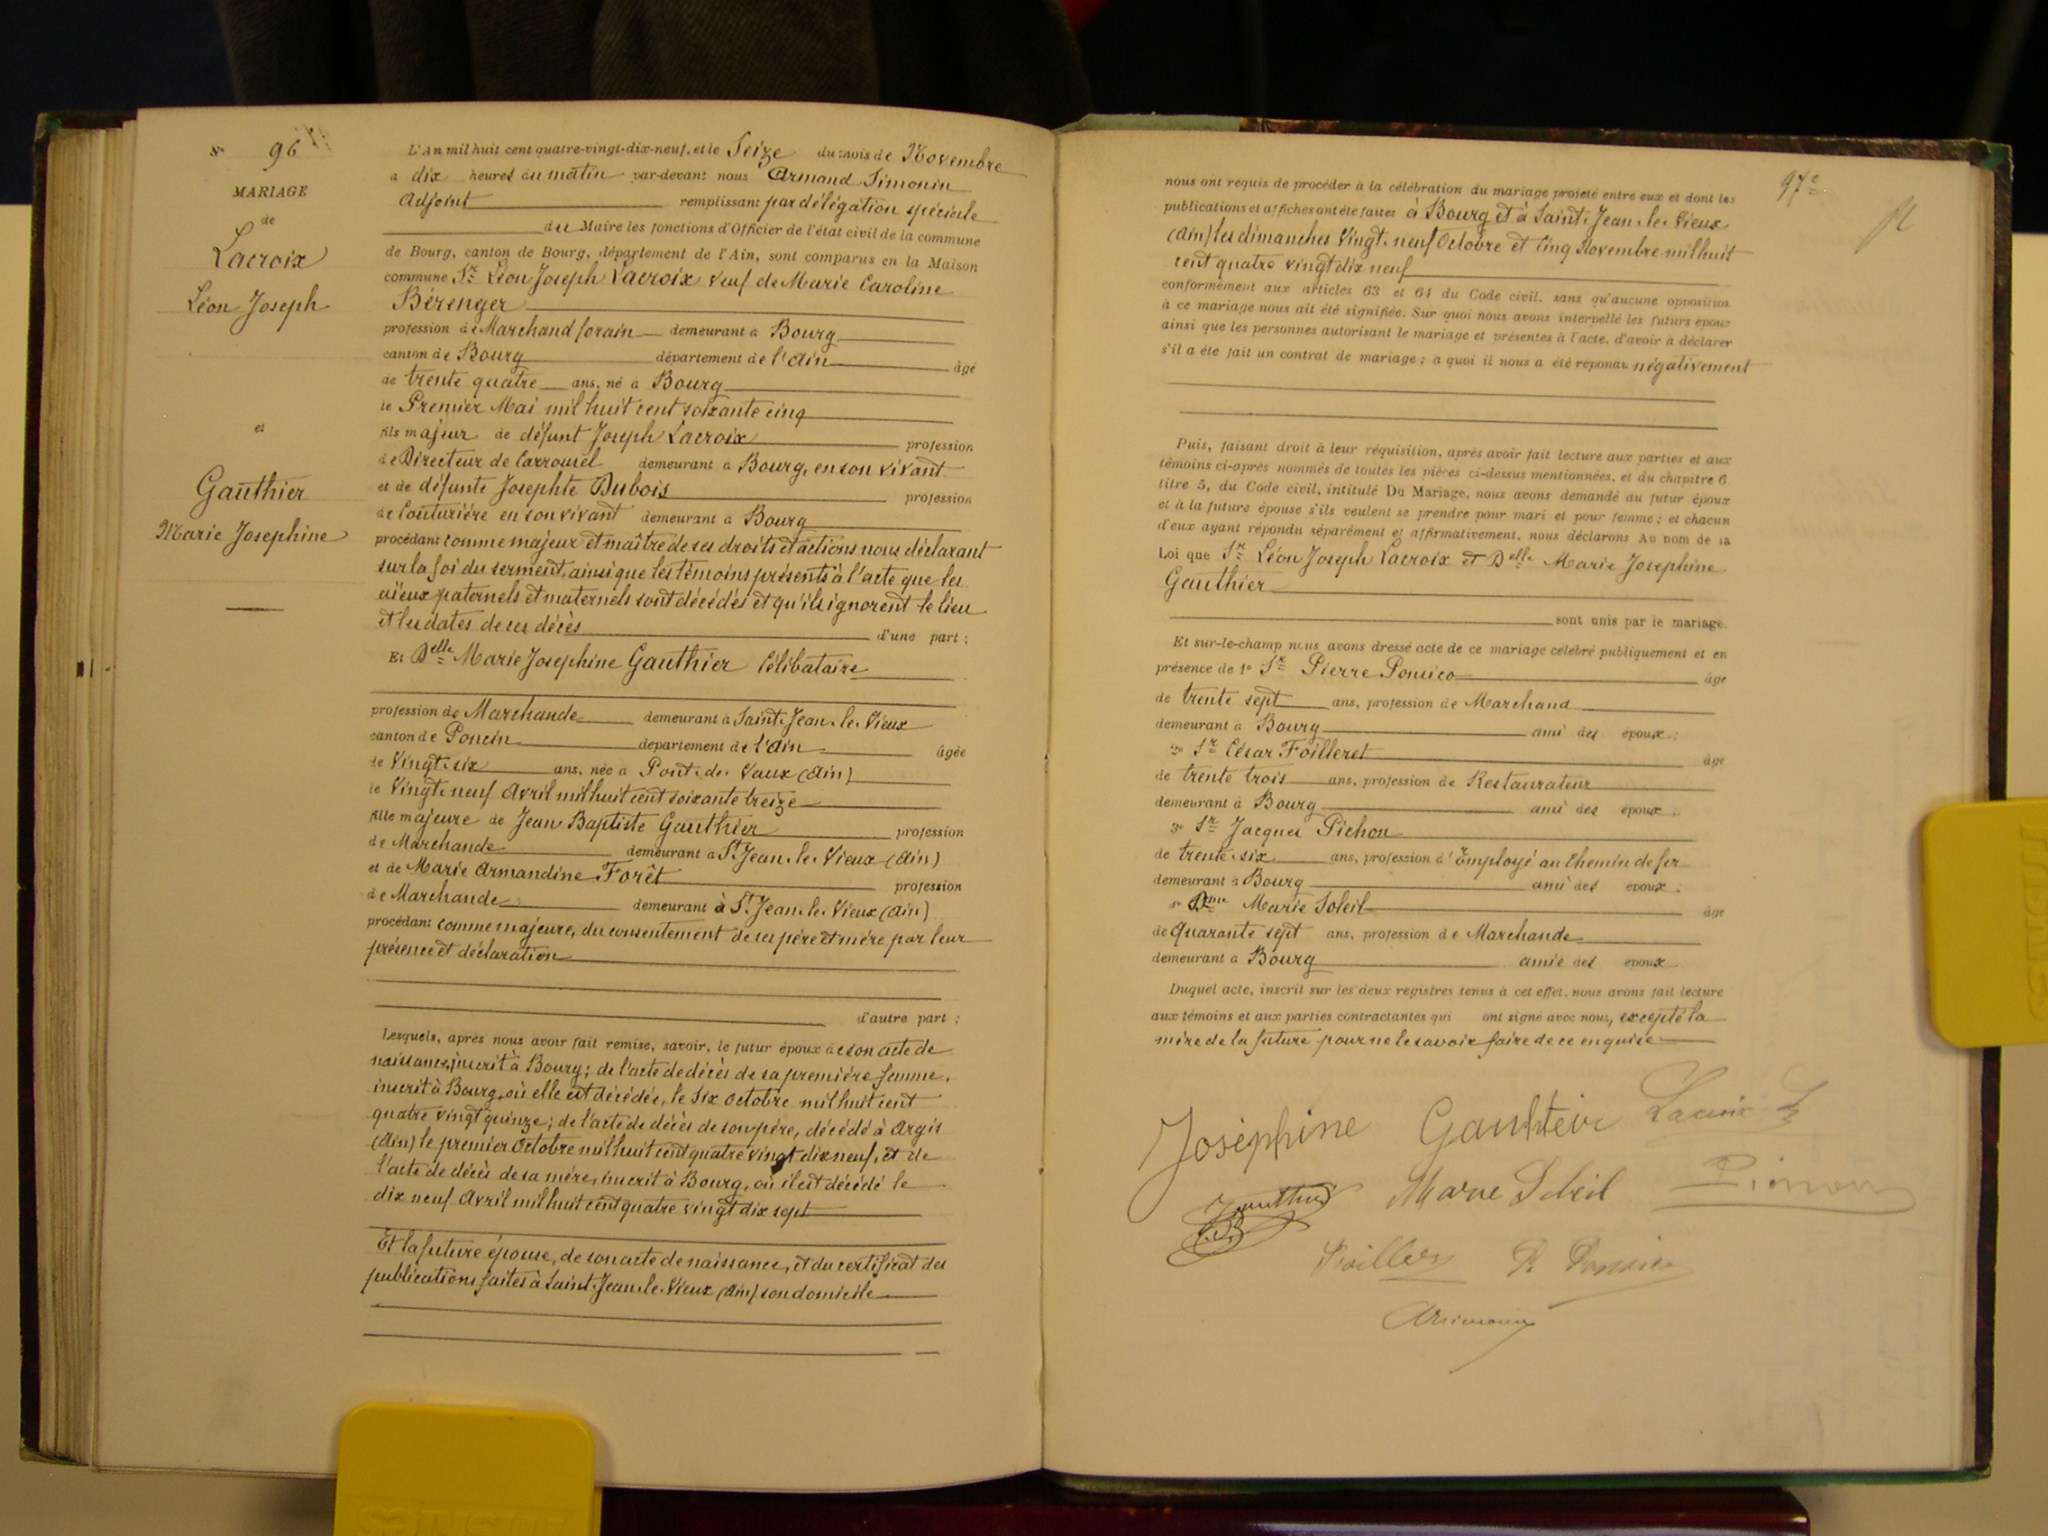 N° 96
MARIAGE
de
Lacroix
Léon Joseph
et
Gauthier
Marie Josephine
L'An mil huit cent quatre-vingt-dix-neuf, et le Seize du mois de Novembre
à dix heures du matin par-devant nous Armand Simonin
Adjoint remplissant par délégation spéciale
du Maire les fonctions d'Officier de l'état civil de la commune
de Bourg, canton de Bourg, département de l'Ain, sont comparus en la Maison
commune Sr Léon Joseph Lacroix veuf de Marie Caroline
Bérenger
profession de Marchand forain demeurant à Bourg
canton de Bourg département de l'Ain âgé
de trente quatre ans, né à Bourg
le Premier Mai mil huit cent soixante cinq
fils majeur de défunt Joseph Lacroix profession
de Directeur de Carrousel demeurant à Bourg, en son vivant
et de défunte Josephte Dubois profession
de Couturière en son vivant demeurant à Bourg
procédant comme majeur et maître de ses droits et actions nous déclarant
sur la foi du serment, ainsi que les témoins présents à l'acte que les
aïeux paternels et maternels sont décédés et qu'ils ignorent le lieu
et les dates de ces décès d'une part ;
Et Delle Marie Josephine Gauthier Célibataire
profession de Marchande demeurant à Saint-Jean-le-Vieux
canton de Poncin département de l'Ain âgée
de Vingt-six ans, née à Pont-de-Vaux (Ain)
le Vingt-neuf Avril mil huit cent soixante treize
fille majeure de Jean Baptiste Gauthier profession
de Marchande demeurant à St-Jean-le-Vieux (Ain)
et de Marie Armandine Forêt profession
de Marchande demeurant à St-Jean-le-Vieux (Ain)
procédant comme majeure, du consentement de ses père et mère par leur
présence et déclaration
d'autre part ;
Lesquels, après nous avoir fait remise, savoir, le futur époux de son acte de
naissance, inscrit à Bourg ; de l'acte de décès de sa première femme,
inscrit à Bourg, où elle est décédée, le Six Octobre mil huit cent
quatre vingt quinze ; de l'acte de décès de son père, décédé à Argis
(Ain) le premier Octobre mil huit cent quatre vingt dix neuf, et de
l'acte de décès de sa mère, inscrit à Bourg, où il est décédé le
dix neuf Avril mil huit cent quatre vingt dix sept
Et la future épouse, de son acte de naissance, et du certificat des
publications faites à Saint-Jean-le-Vieux (Ain) son domicile
97e
nous ont requis de procéder à la célébration du mariage projeté entre eux et dont les
publications et affiches ont été faites à Bourg et à Saint-Jean-le-Vieux
(Ain) les dimanches Vingt-neuf Octobre et Cinq Novembre mil huit
cent quatre vingt dix neuf
conformément aux articles 63 et 64 du Code civil, sans qu'aucune opposition
à ce mariage nous ait été signifiée. Sur quoi nous avons interpellé les futurs époux
ainsi que les personnes autorisant le mariage et présentes à l'acte, d'avoir à déclarer
s'il a été fait un contrat de mariage ; à quoi il nous a été répondu négativement
Puis, faisant droit à leur réquisition, après avoir fait lecture aux parties et aux
témoins ci-après nommés de toutes les pièces ci-dessus mentionnées, et du chapitre 6
titre 5, du Code civil, intitulé Du Mariage, nous avons demandé au futur époux
et à la future épouse s'ils veulent se prendre pour mari et pour femme ; et chacun
d'eux ayant répondu séparément et affirmativement, nous déclarons Au nom de la
Loi que Sr Léon Joseph Lacroix et Delle Marie Josephine
Gauthier
sont unis par le mariage.
Et sur-le-champ nous avons dressé acte de ce mariage célébré publiquement et en
présence de 1° Sr Pierre Ponsico âgé
de trente sept ans, profession de Marchand
demeurant à Bourg ami des époux ;
2° Sr César Foilleret âgé
de trente trois ans, profession de Restaurateur
demeurant à Bourg ami des époux ;
3° Sr Jacques Pichon
de trente-six ans, profession d'Employé au Chemin de fer
demeurant à Bourg ami des époux ;
4° Dme Marie Soleil âgé
de Quarante sept ans, profession de Marchande
demeurant à Bourg amie des époux.
Duquel acte, inscrit sur les deux registres tenus à cet effet, nous avons fait lecture
aux témoins et aux parties contractantes qui ont signé avec nous, excepté la
mère de la future pour ne le savoir faire de ce enquise
Joséphine Gauhteir Lacroix L
Gauthier
Marie Soleil
P. Ponsico
ASimonin